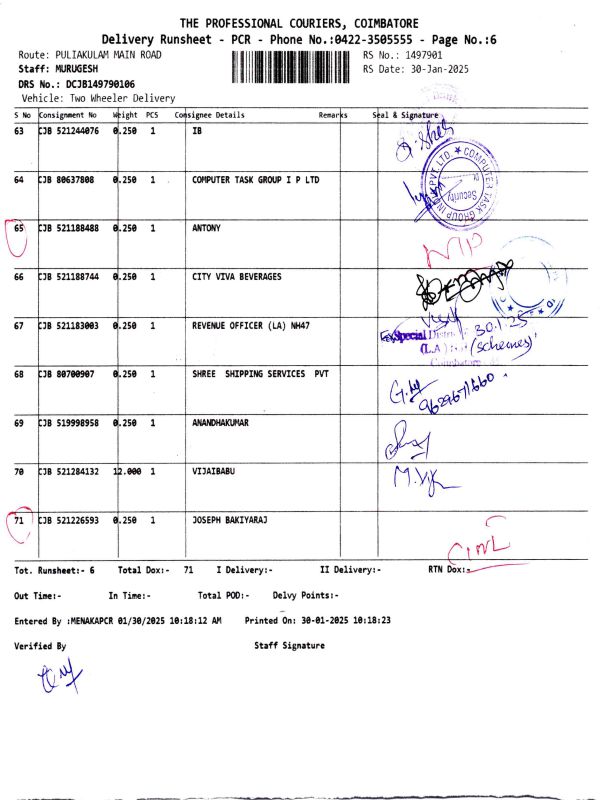 THE PROFESSIONAL COURIERS, COIMBATORE
Delivery Runsheet - PCR - Phone No.:0422-3505555 - Page No.:6
Route: PULIAKULAM MAIN ROAD RS No.: 1497901
Staff: MURUGESH RS Date: 30-Jan-2025
DRS No.: DCJB149790106
Vehicle: Two Wheeler Delivery
S No Consignment No Weight PCS Consignee Details Remarks Seal & Signature
63 CJB 521244076 0.250 1 IB
64 CJB 80637808 0.250 1 COMPUTER TASK GROUP I P LTD
COMPUTER TASK GROUP INDIA PVT. LTD. ★
Security
65 CJB 521188488 0.250 1 ANTONY
NTP
66 CJB 521188744 0.250 1 CITY VIVA BEVERAGES
67 CJB 521183003 0.250 1 REVENUE OFFICER (LA) NH47
30.1.25
Special Distr
(L.A) (Schemes)
Coimbatore
68 CJB 80700907 0.250 1 SHREE SHIPPING SERVICES PVT
9629671660
69 CJB 519998958 0.250 1 ANANDHAKUMAR
70 CJB 521284132 12.000 1 VIJAIBABU
71 CJB 521226593 0.250 1 JOSEPH BAKIYARAJ
Tot. Runsheet:- 6 Total Dox:- 71 I Delivery:- II Delivery:- RTN Dox:-
Out Time:- In Time:- Total POD:- Delvy Points:-
Entered By :MENAKAPCR 01/30/2025 10:18:12 AM Printed On: 30-01-2025 10:18:23
Verified By Staff Signature